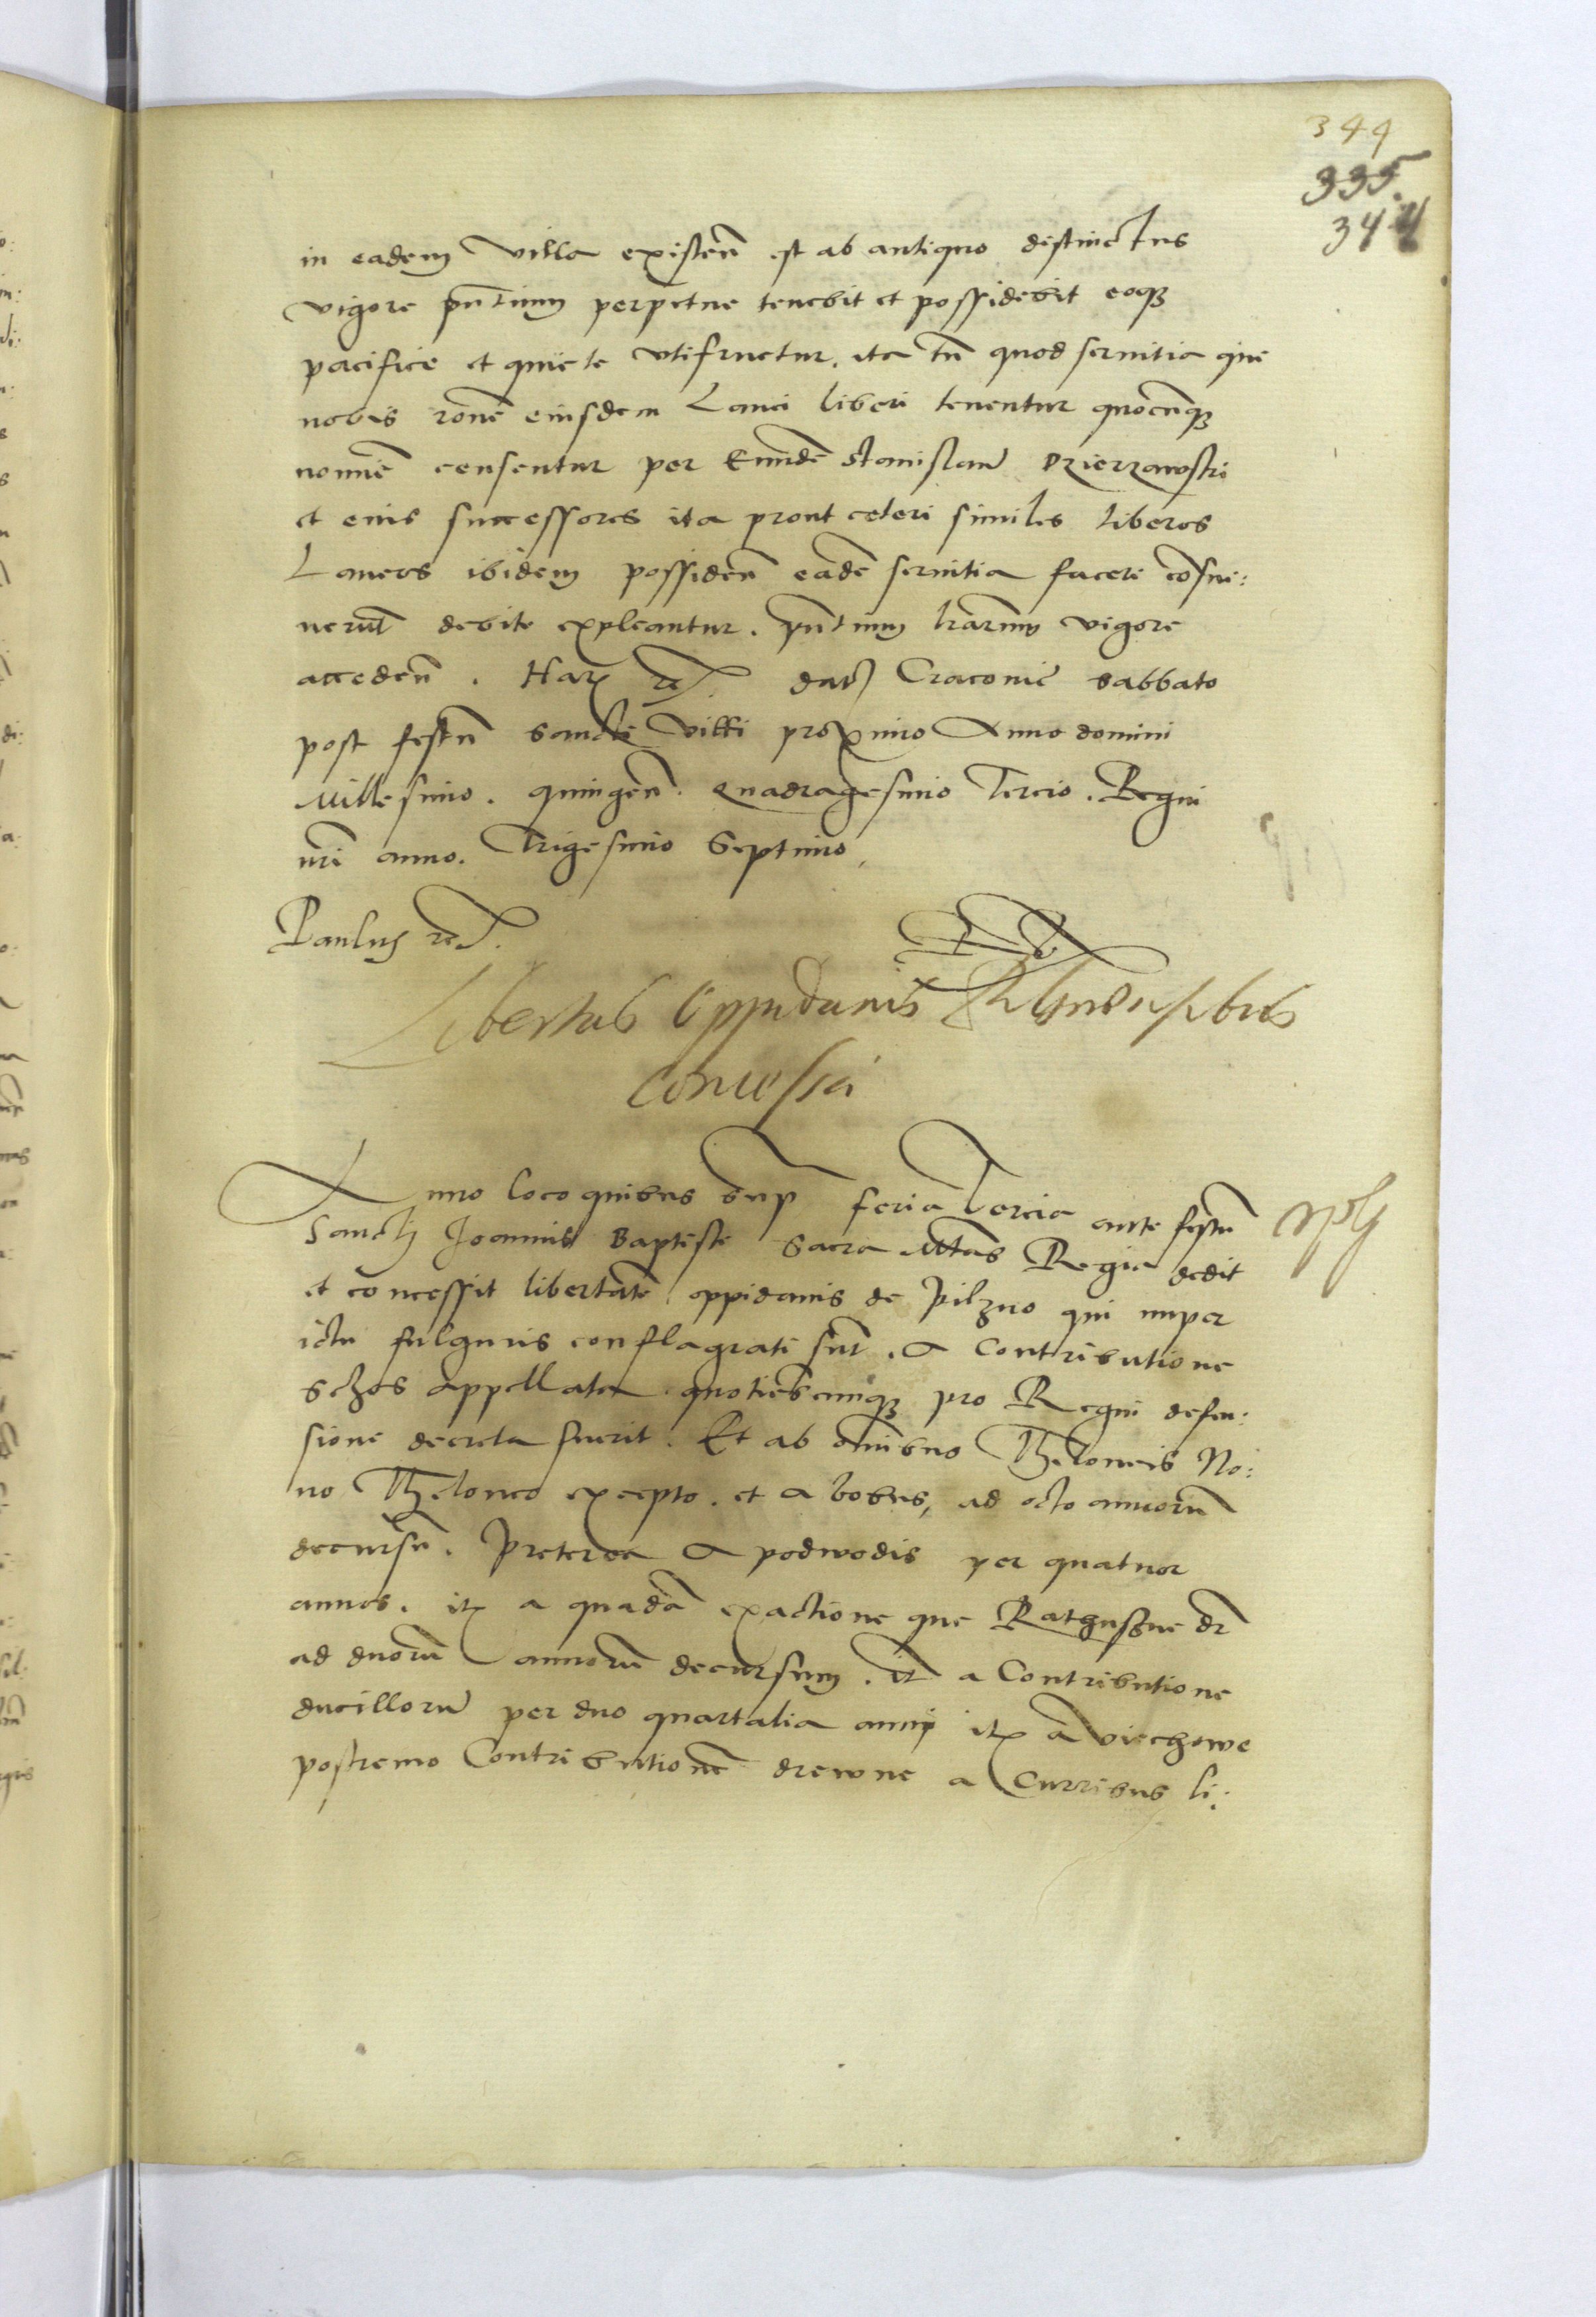 344
335.
344
in eadem villa existen̄ est ab antiquo distinctus
vigore pn̄tium perpetue tenebit et possidebit eoqꝫ
pacifice et quiete vtifruetur. ita tn̄ quod seruitia que
nobis rōne eiusdem Lanei liberi tenentur quocūqꝫ
nomīe censentur per Eundē Stanislaū Dzierzawski
et eius successores ita prout ceteri similes liberos
Laneos ibidem possiden̄ eadē seruitia facere cōsue:
uerūt debite expleantur. pn̄tium lr̄arum vigore
acceden̄. Har̄ et̄. Dat̄ Cracouie sabbato
post festū sancti Viti proximo Anno domini
Millesimo. quingen̄. Quadragesimo Tercio. Regni
nr̄i anno. Trigesimo Septimo
Paulus
Libertas Oppidanis
Concessa
Anno loco quibus sup̄ feria Tercia ante festū
Sancti Joannis Baptiste Sacra Mt̄as Regia dedit
et concessit libertatē oppidanis de Pilzno qui nuper
ictu fulguris conflagrati sūt. a Contributione
schos appellata quotiescunqꝫ pro Regni defen:
sione decreta fuerit. Et ab omībus Theloneis No:
uo Theloneo excepto. et a bobus, ad octo annorū
decursū. Preterea a podwodis per quatuor
annos. it̄ a quadā exactione que Rathusne dr̄
ad duorū annorū decursum. it̄ a Contributione
ducillorū per duo quartalia anni it̄ a viechowe
postremo Contributionē drewne a Curribus li: